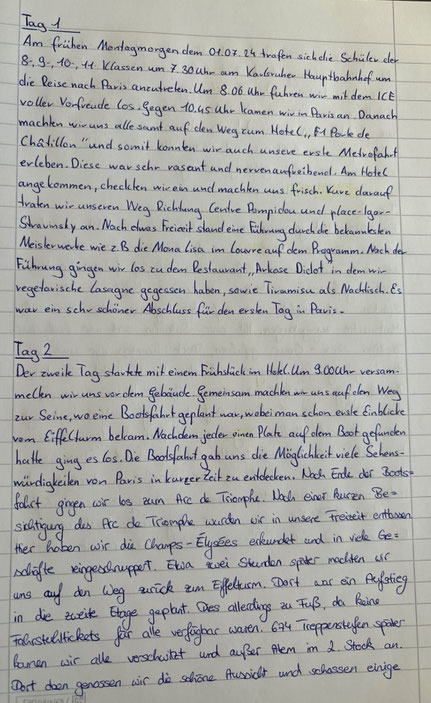 Tag 1
Am frühen Montagmorgen dem 01.07.24 trafen sich die Schüler der
8-, 9-, 10-, 11 Klassen um 7.30 Uhr am Karlsruher Hauptbahnhof um
die Reise nach Paris anzutreten. Um 8.06 Uhr fuhren wir mit dem ICE
voller Vorfreude los. Gegen 10.45 Uhr kamen wir in Paris an. Danach
machten wir uns alle samt auf den Weg zum Hotel „F1 Porte de
Châtillon" und somit konnten wir auch unsere erste Metrofahrt
erleben. Diese war sehr rasant und nervenaufreibend. Am Hotel
angekommen, checkten wir ein und machten uns frisch. Kurz darauf
traten wir unseren Weg Richtung Centre Pompidou und place-Igor-
Stravinsky an. Nach etwas Freizeit stand eine Führung durch die bekanntesten
Meisterwerke wie z.B die Mona Lisa im Louvre auf dem Programm. Nach der
Führung gingen wir los zu dem Restaurant „Arkose Didot in dem wir
vegetarische Lasagne gegessen haben, sowie Tiramisu als Nachtisch. Es
war ein sehr schöner Abschluss für den ersten Tag in Paris.
Tag 2
Der zweite Tag startete mit einem Frühstück im Hotel. Um 9.00 Uhr versam-
melten wir uns vor dem Gebäude. Gemeinsam machten wir uns auf den Weg
zur Seine, wo eine Bootsfahrt geplant war, wobei man schon erste Einblicke
vom Eiffelturm bekam. Nachdem jeder einen Platz auf dem Boot gefunden
hatte ging es los. Die Bootsfahrt gab uns die Möglichkeit viele Sehens-
würdigkeiten von Paris in kurzer Zeit zu entdecken. Nach Ende der Boots-
fahrt gingen wir los zum Arc de Triomphe. Nach einer kurzen Be=
sichtigung des Arc de Triomphe wurden wir in unsere Freizeit entlassen.
Hier haben wir die Champs-Elysées erkundet und in viele Ge=
schäfte reingeschnuppert. Etwa zwei Stunden später machten wir
uns auf den Weg zurück zum Eiffelturm. Dort war ein Aufstieg
in die zweite Etage geplant. Dies allerdings zu Fuß, da keine
Fahrstuhltickets für alle verfügbar waren. 674 Treppenstufen später
kamen wir alle verschwitzt und außer Atem im 2. Stock an.
Dort oben genossen wir die schöne Aussicht und schossen einige